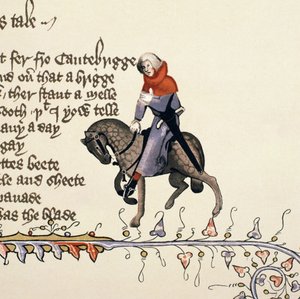 s tale
t fer fro Cantebrigge
nd ou that a brigge
ther stant a melle
ooth þt I yow telle
any a day
gay
ttes beete
tle and sheete
panade
as the blade